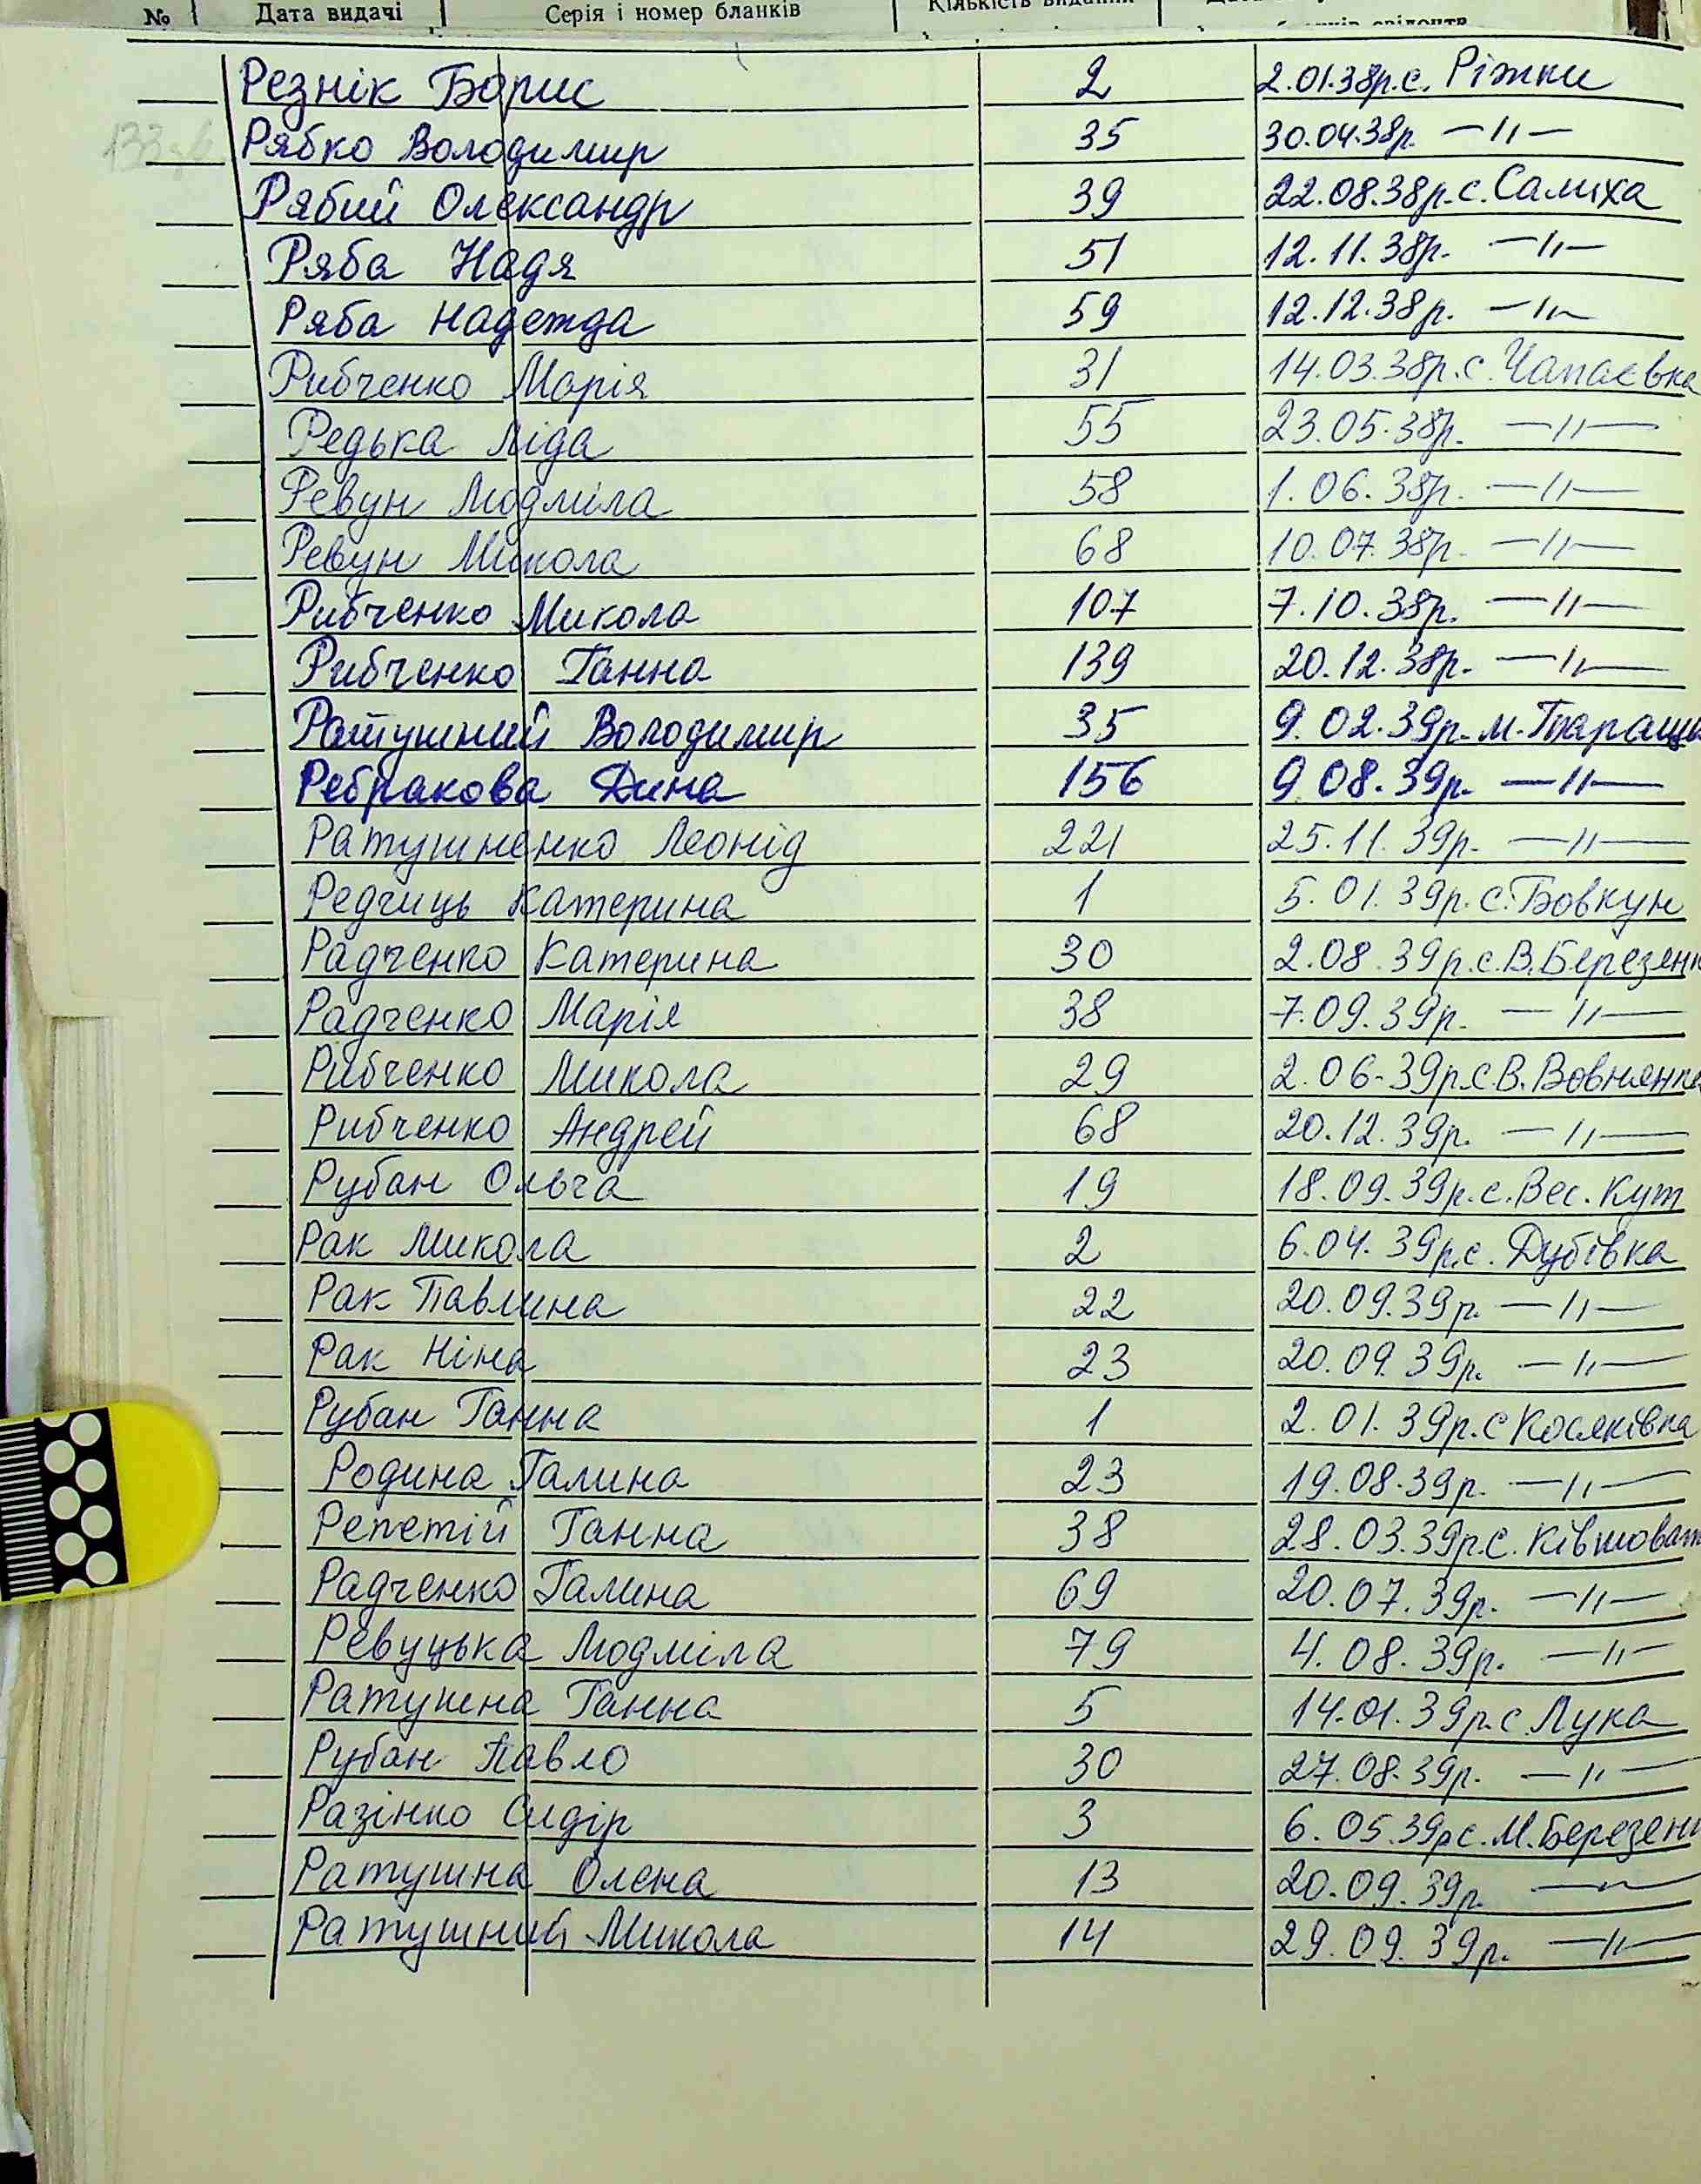 № Дата видачі Серія і номер бланків
Резнік Борис 2 2.01.38р. с. Ріжки
Рябко Володимир 35 30.04.38р. —"—
Рябий Олександр 39 22.08.38р. с. Салиха
Ряба Надя 51 12.11.38р. —"—
Ряба Надежда 59 12.12.38р. —"—
Рибченко Марія 31 14.03.38р. с. Чапаєвка
Редька Ліда 55 23.05.38р. —"—
Ревун Людміла 58 1.06.38р. —"—
Ревун Микола 68 10.07.38р. —"—
Рибченко Микола 107 7.10.38р. —"—
Рибченко Ганна 139 20.12.38р. —"—
Ратушний Володимир 35 9.02.39р. м. Таращ
Ребракова Дина 156 9.08.39р. —"—
Ратушненко Леонід 221 25.11.39р. —"—
Редчиць Катерина 1 5.01.39р. с. Бовкун
Радченко Катерина 30 2.08.39р. с. В. Березянк
Радченко Марія 38 7.09.39р. —"—
Рибченко Микола 29 2.06.39р. с. В. Вовнянка
Рибченко Андрей 68 20.12.39р. —"—
Рубан Ольга 19 18.09.39р. с. Вес. Кут
Рак Микола 2 6.04.39р. с. Дубівка
Рак Павлина 22 20.09.39р. —"—
Рак Ніна 23 20.09.39р. —"—
Рубан Ганна 1 2.01.39р. с Косяківка
Родина Галина 23 19.08.39р. —"—
Репетій Ганна 38 28.03.39р. с. Ківшоват
Радченко Галина 69 20.07.39р. —"—
Ревуцька Людміла 79 4.08.39р. —"—
Ратушна Ганна 5 14.01.39р. с Лука
Рубан Павло 30 27.08.39р. —"—
Разінко Сидір 3 6.05.39р с. М. Березен
Ратушна Олена 13 20.09.39р. —"—
Ратушний Микола 14 29.09.39р. —"—